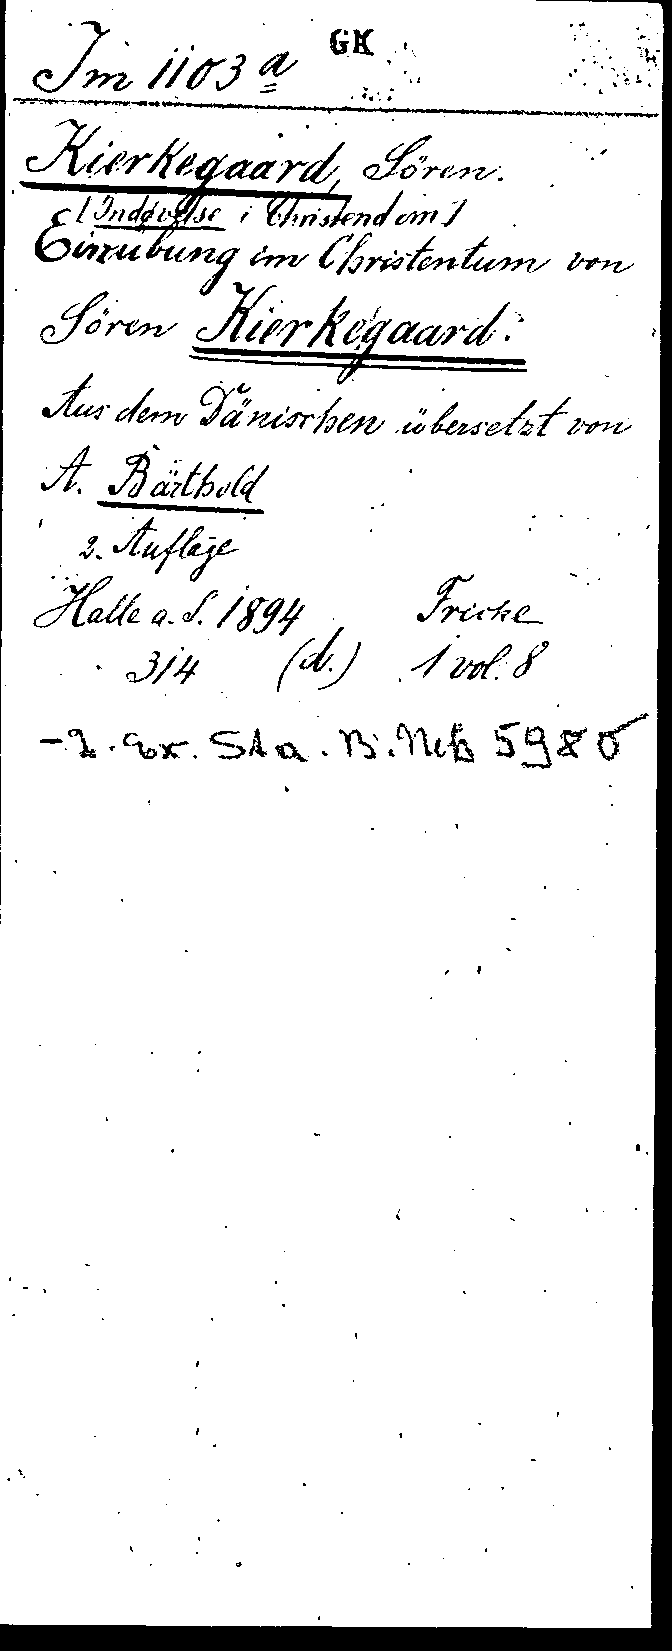 Im 1103 a GK
Kierkegaard, Sören.
[Indøvelse i Christendom]
Einübung im Christentum von
Sören Kierkegaard.
Aus dem Dänischen übersetzt von
A. Bärthold
2. Auflage
Halle a. S. 1894 Fricke
314 (d.) 1 vol. 8
- 2. Ex. Sta. B. Neß 5980